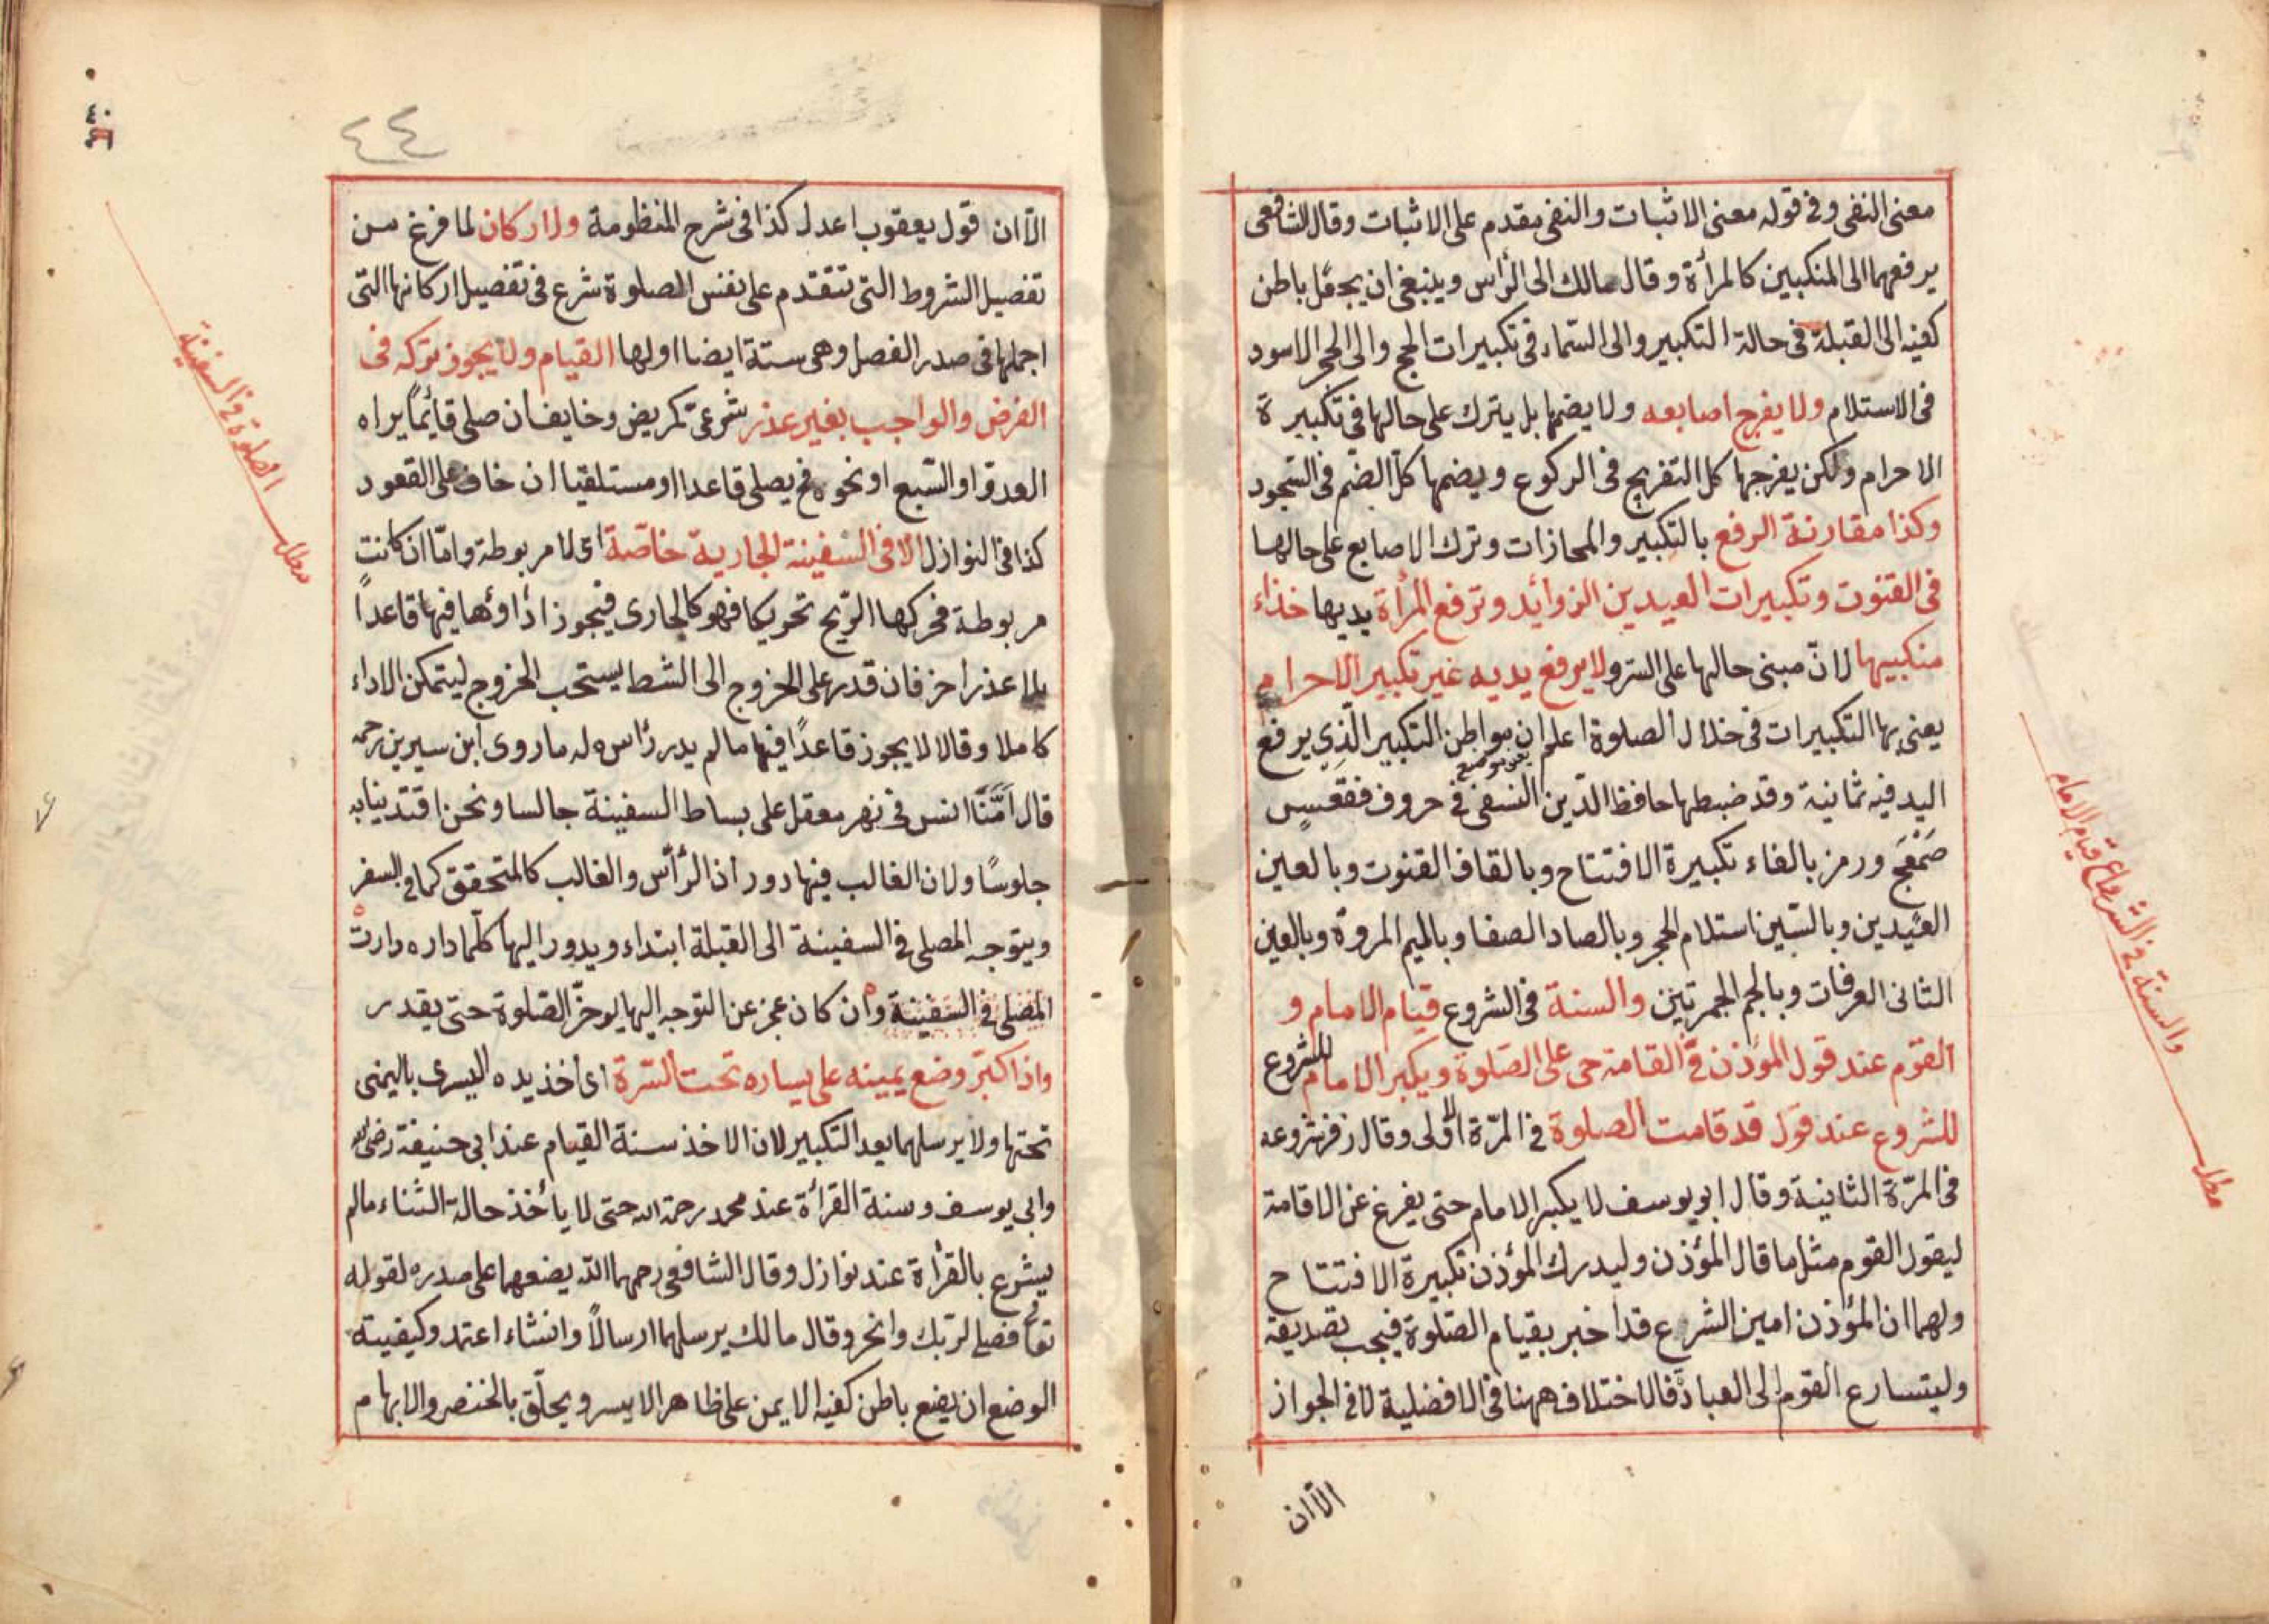 معنى النفى وفى قوله معنى الاثبات والنفى مقدم على الاثبات وقال الشافعى
يرفعهما الى المنكبين كالمرأة وقال مالك الى الرأس وينبغى ان يجعل باطن
كفيه الى القبلة فى حالة التكبير والى السماء فى تكبيرات الحج والى الحجر الاسود
فى الاستلام ولا يفرج اصابعه ولا يضمها بل يترك على حالها فى تكبيرة
الاحرام ولكن يفرجها كل التفريج فى الركوع ويضمها كل الضم فى السجود
وكذا مقارنة الرفع بالتكبير والمحازات وترك الاصابع على حالها
فى القنوت وتكبيرات العيدين الزوائد وترفع المرأة يديها خذاء
منكبيها لان مبنى حالها على الستر ولا يرفع يديه غير تكبير الاحرام
يعنى بها التكبيرات فى خلال الصلوة اعلم ان مواطن التكبير الذى يرفع
اليد فيه ثمانية وقد ضبطها حافظ الدين النسفى فى حروف فقعس
صَمْعَج ورمز بالفاء تكبيرة الافتتاح وبالقاف القنوت وبالعين
العيدين وبالسين استلام الحجر وبالصاد الصفا وبالميم المروة وبالعين
الثانى العرفات وبالجم الجمرتين والسنة فى الشروع قيام الامام و
القوم عند قول المؤذن فى القامة حى على الصلوة ويكبر الامام للشروع
للشروع عند قول قد قامت الصلوة فى المرة الاولى وقال زفر شروعه
فى المرة الثانية وقال ابو يوسف لا يكبر الامام حتى يفرغ عن الاقامة
ليقول القوم مثل ما قال المؤذن وليدرك المؤذن تكبيرة الافتتاح
ولهما ان المؤذن امين الشرع قد اخبر بقيام الصلوة فيجب تصديقه
وليتسارع القوم الى العبادة فالاختلاف ههنا فى الافضلية لا فى الجواز
الاان
والسنة فى الشروع قيام الامام
مطلب
٤٤
٤٠
الاان قول يعقوب اعدل كذا فى شرح المنظومة والاركان لما فرغ من
تفصيل الشروط التى تتقدم على نفس الصلوة شرع فى تفصيل اركانها التى
اجملها فى صدر الفصل وهى ستة ايضا اولها القيام ولا يجوز تركه فى
الفرض والواجب بغير عذر شرعى كمريض وخايف ان صلى قائما يراه
العدو او السبع او نحوه فح يصلى قاعدا او مستلقيا ان خاف على القعود
كذا فى النوازل الا فى السفينة الجارية خاصة اى لا مربوطة واما ان كانت
مربوطة فحركها الريح تحريكا فهو كالجارى فيجوز اداؤها فيها قاعداً
بلا عذر اخر فان قدر على الخروج الى الشط يستحب الخروج ليتمكن الاداء
كاملا وقالا لا يجوز قاعداً فيها ما لم يدر رأسه له ما روى ابن سيرين رحمه
قال اَمَّنَا انس فى نهر معقل على بساط السفينة جالسا ونحن اقتدينا به
جلوسًا ولان الغالب فيها دوران الرأس والغالب كالمتحقق كما فى السفر
ويتوجه المصلى فى السفينة الى القبلة ابتداء ويدور اليها كلما داره دارت
المصلى فى السفينة وان كان عجز عن التوجه اليها يوخر الصلوة حتى يقدر
واذا كبر وضع يمينه على يساره تحت السرة اى اخذ يده اليسرى باليمنى
تحتها ولا يرسلهما بعد التكبير لان الاخذ سنة القيام عند ابى حنيفة رضى الله
وابى يوسف وسنة القرأة عند محمد رحمة الله حتى لا يأخذ حالة الثناء مالم
يشرع بالقرأة عند نوازل وقال الشافعى رحمهما الله يضعهما على صدره لقوله
تعالى فصل لربك وانحر وقال مالك يرسلهما ارسالاً وان شاء اعتمد وكيفيته
الوضع ان يضع باطن كفيه الايمن على ظاهر الايسر ويحلق بالخنصر والابهام
الصلوة فى السفينة
مطلب